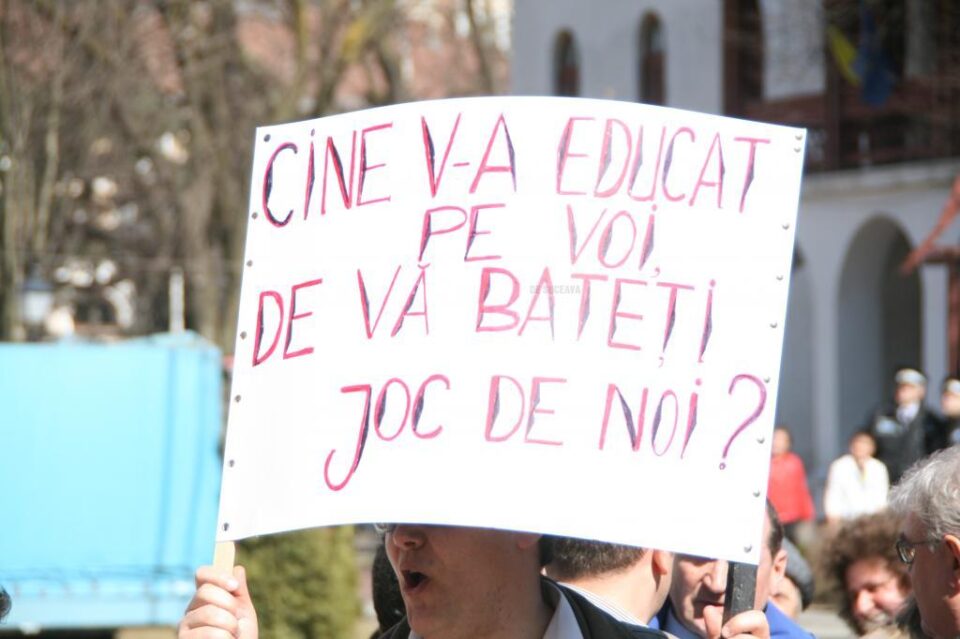 CINE V-A EDUCAT
PE VOI,
DE VĂ BATEȚI
JOC DE NOI?